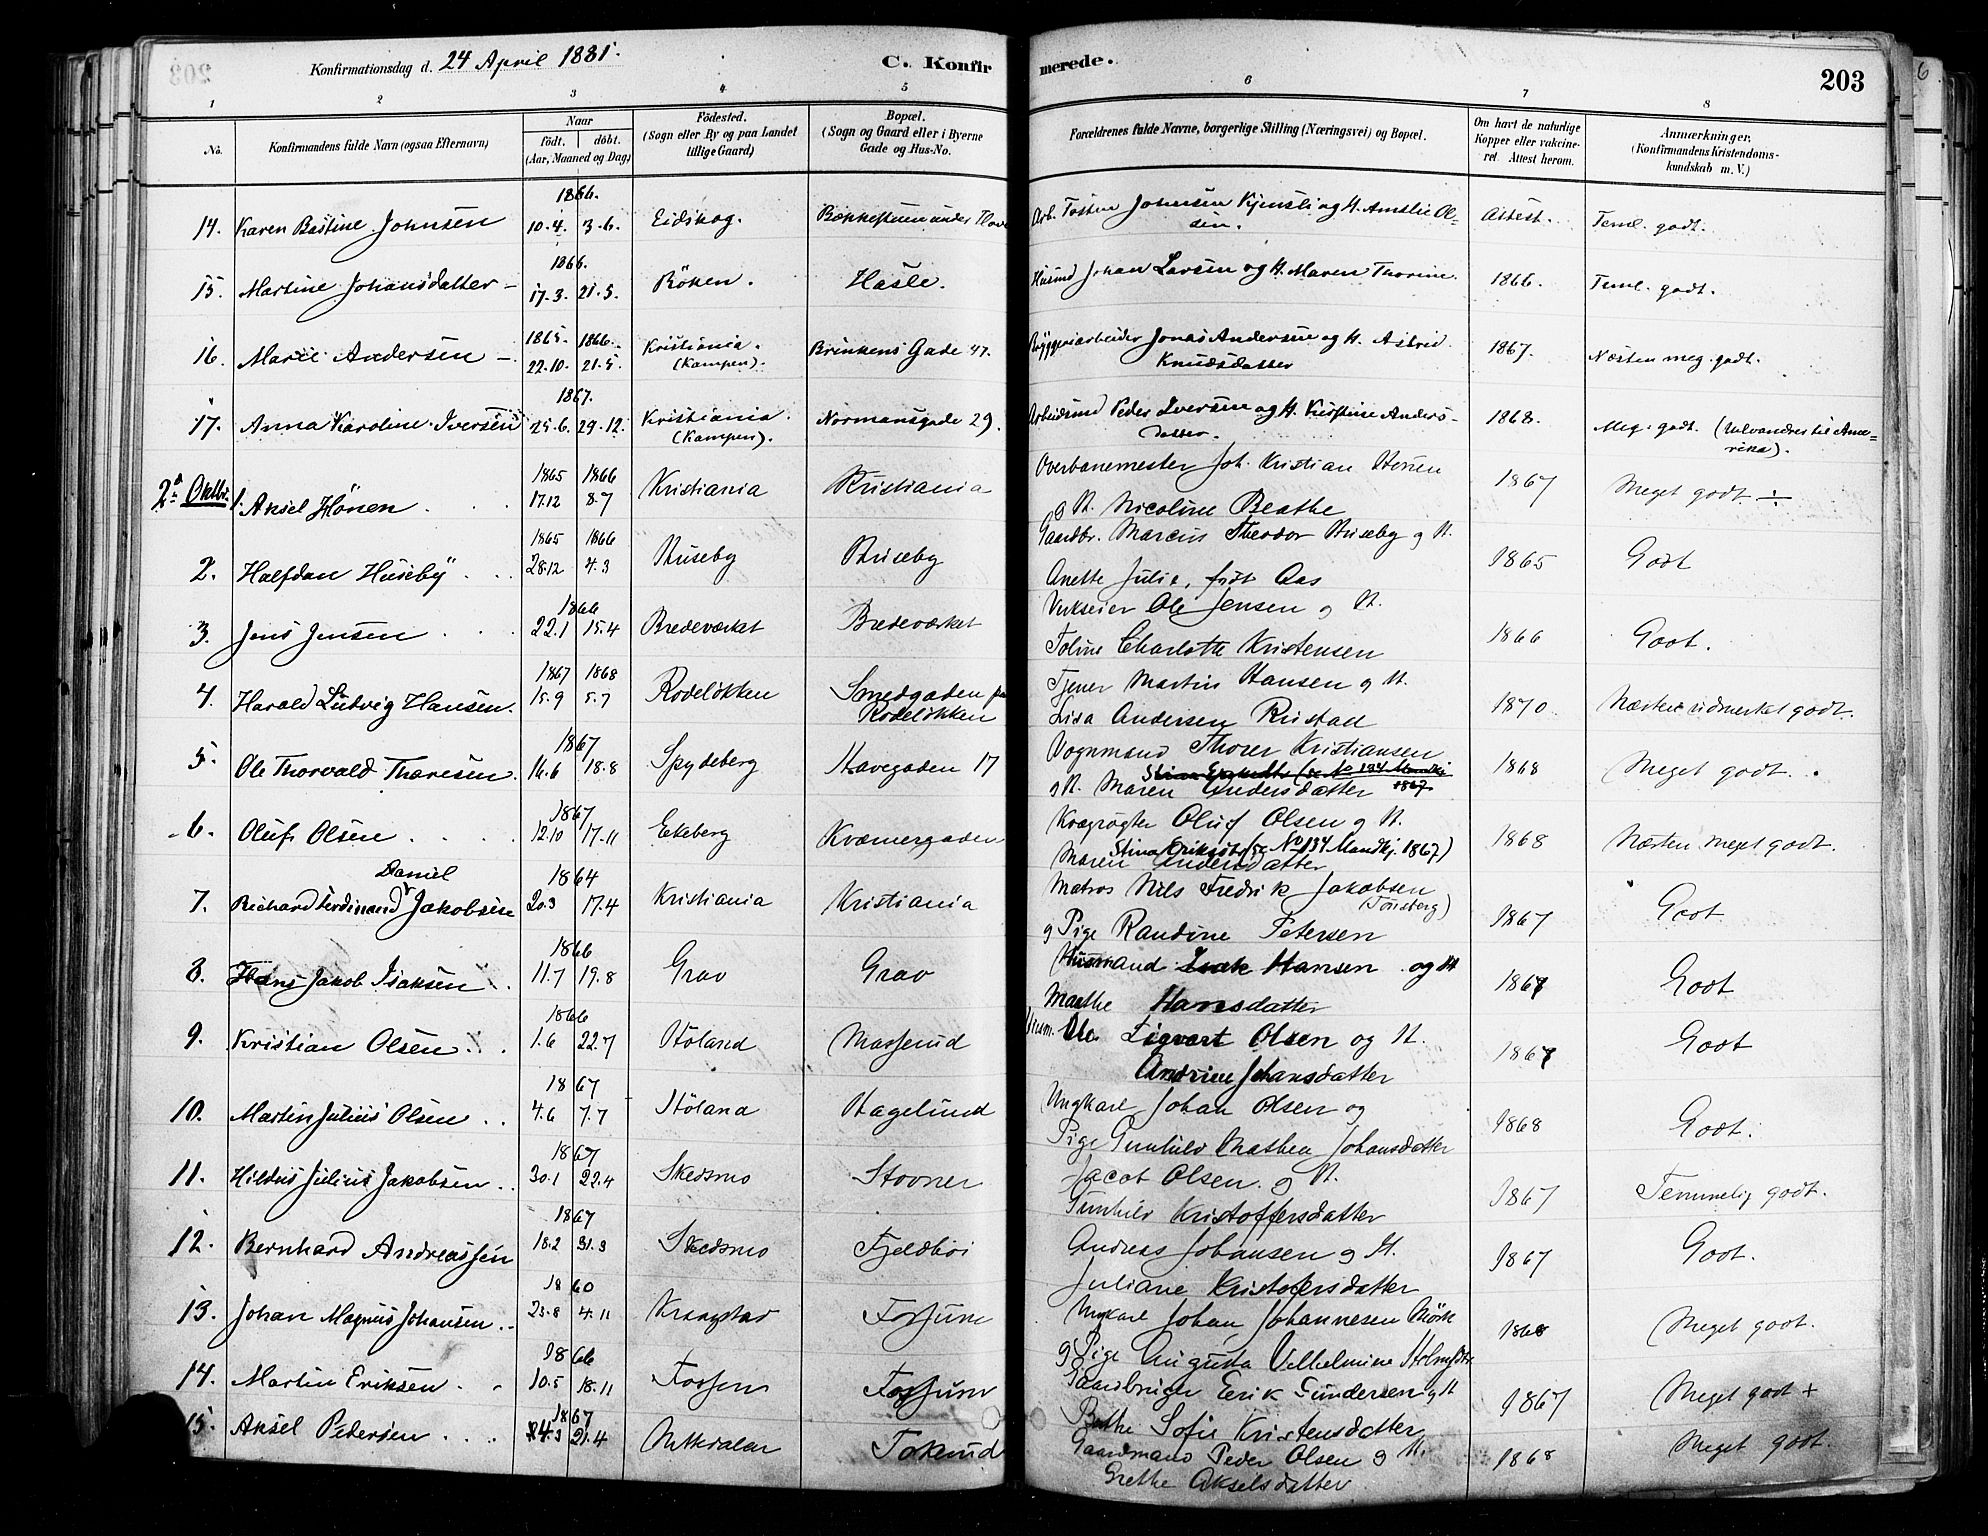 Konfirmationsdag d. 24 April 1881.
C. Konfirmerede.
203
6
1 2 3 4 5 6 7 8
No. Konfirmandens fulde Navn (ogsaa Efternavn) Naar født. døbt. (Aar, Maaned og Dag) Födested. (Sogn eller By og paa Landet tillige Gaard) Bopæl. (Sogn og Gaard eller i Byerne Gade og Hus-No. Forældrenes fulde Navne, borgerlige Stilling (Næringsvei) og Bopæl. Om havt de naturlige Kopper eller vakcineret. Attest herom. Anmærkninger. (Konfirmandens Kristendomskundskab m. V.)
1866.
14. Karen Bastine Johnsen 10.4. 3.6. Eidskog. under Arb. Johnsen og H. Amalie Olsen. Attest. Teml. godt.
1866.
15. Martine Johansdatter 17.3. 21.5. Röken. Hasle. Husmd Johan Larsen og H. Maren Thorine. 1866. Teml. godt.
1865. 1866.
16. Marie Andersen 22.10. 21.5. Kristiania. (Kampen). Brinkens Gade 47. Bryggeriarbeider Jonas Andersen og H. Astrid Knudsdatter 1867. Næsten meg. godt.
1867.
17. Anna Karoline Iversen 25.6. 29.12. Kristiania. (Kampen). Normansgade 29. Arbeidsmd Peder Iversen og H. Kirstine Andersdatter. 1868. Meg. godt. (Udvandrer til Amerika).
1865 1866
2den Oktbr. 1. Aksel Hönen 17.12 8.7 Kristiania Kristiania Overbanemester Joh. Kristian Hönen
og H. Nicoline Beathe 1867 Meget godt ÷
1865 1866
2. Halfdan Huseby 28.12 4.3 Huseby Huseby Gaardbr. Marcus Theodor Huseby og H.
Anette Julie, født Aas 1865 Godt
1866
3. Jens Jensen 22.1 15.4 Bredeværket Bredeværket Verkseier Ole Jensen og H.
Toline Charlotte Kristensen 1866 Godt.
1867 1868
4. Harald Ludvig Hansen. 15.9 5.7 Rodelökken Smedgaden paa Rodelökken Tjener Martin Hansen og H.
Lisa Andersen Rustad 1870 Næsten udmerket godt.
1867
5. Ole Thorvald Thoresen. 16.6 18.8 Spydeberg Havegaden 17 Vognmand Thorer Kristiansen
og H. Maren Andersdatter 1868 Meget godt.
1867
6. Oluf Olsen 12.10 17.11 Ekeberg Kværnergaden Kvægrögter Oluf Olsen og H.
Stina Eriksdtr (se No 134 Mandkj. 1867)
Maren Andersdatter 1868 Næsten meget godt.
Daniel
1864
7. Richard Ferdinand Jakobsen 20.3 17.4 Kristiania Kristiania Matros Nils Fredrik Jakobsen (Tönsberg)
og Pige Randine Petersen 1867 Godt
1866
8. Hans Jakob Isaksen 11.7 19.8 Grav Grav Husmand Isak Hansen og H.
Marthe Hansdatter 1867 Godt
1866
9. Kristian Olsen 1.6 22.7 Höland Husm. Ole Sigvart Olsen og H.
Andrine Johansdatter 1867 Godt
1867
10. Martin Julius Olsen 4.6 7.7 Höland Hagelund Ungkarl Johan Olsen og
Pige Gunhild Mathea Johansdatter 1868 Godt.
1867
11. Hildus Julius Jakobsen 30.1 22.4 Skedsmo Stovner Jacob Olsen og H.
Gunhild Kristoffersdatter 1867 Temmelig godt.
1867
12. Bernhard Andreassen 18.2 31.3 Skedsmo Fjeldböi Andreas Johansen og H.
Juliane Kristofersdatter 1867 Godt.
1860
13. Johan Magnus Johansen 25.8 4.11 Kraagstad Fossum Ungkarl Johan Johannesen Mörk
og Pige Augusta Vilhelmine 1868 Meget godt.
1866
14. Martin Eriksen 10.5 18.11 Fossum Gaardbruger Eerik Gundersen og H.
Sofie Kristensdatter 1867 Meget godt +
1867
15. Aksel Pedersen 4.3 21.4 Nitkdalen Tokerud Gaardmand Peder Olsen og H.
Grethe Akselsdatter 1868 Meget godt.